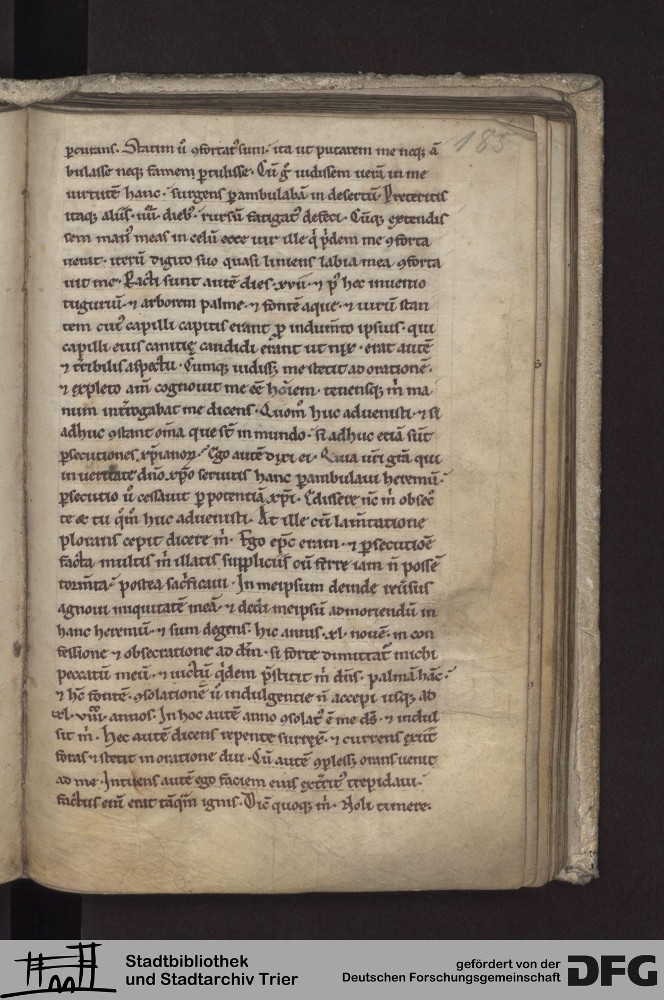 183
ꝑcurans. Statim ū ꝯfortatꝰ sum. ita ut putarem me neqꝫ ā
bulasse neqꝫ famem ꝑtulisse. Cū gͦ uidissem ueīā in me
uirtutē hanc. surgens ꝑambulabā in desertū. Preteritis
itaqꝫ aliis .iiii. diebꝰ. rursū fatigatꝰ defeci. Cūqꝫ extendis
sem manꝰ meas in celū ecce uir ille q̇ p̄dem me ꝯforta
uerat. iterū digito suo quasi liniens labia mea ꝯforta
uit me. Facti sunt autē dies .xvii. ⁊ pꝰ hec inuenio
tuguriū. ⁊ arborem palme. ⁊ fontē aque. ⁊ uirū stan
tem cuiꝰ capilli capitis erant ꝓ indum̄to ipsius. qui
capilli eius canitię candidi erant ut nix. erat autē
⁊ tꝛibilis aspectu. Cumqꝫ uidissꝫ me stetit ad orationē.
⁊ expleto am̄ cognouit me eē hoīem. tenensqꝫ m̄ ma
num int̄rogabat me dicens. Quom̊ huc aduenisti. ⁊ si
adhuc ꝯstant om̄a que st̄ in mundo. si adhuc etiā sūt
ꝑsecutiones xp̄ianoꝝ. Ego autē dixi ei. Quia ur̄i gr̄a qui
in ueritate dn̄o xp̄o seruitis hanc ꝑambulaui heremū.
ꝑsecutio ū cessauit ꝑ potentiā xp̄i. Edissere nc̄ m̄ obsecͦ
te ⁊ tu q̄m̄ huc aduenisti. At ille cū lam̄tatione
plorans cepit dicere m̄. Ego ep̄c eram. ⁊ ꝑsecutiōe
facta multis m̄ illatis suppliciis cū ferre iam n̄ possē
torm̄ta. postea sac̄ficaui. In meipsum deinde reūsus
agnoui iniquitatē meā. ⁊ dedi meipsū ad moriendū in
hanc heremū. ⁊ sum degens hic annis .xl. nouē. in con
fessione ⁊ obsecratione ad dn̄m. si forte dimittat̄ michi
peccatū meū. ⁊ uictū q̇dem p̄stitit m̄ dn̄s. palmā hāc.
⁊ hc̄ fontē. ꝯsolationē ū indulgentie n̄ accepi usqꝫ ad
xl. viiii. annos. In hoc autē anno ꝯsolatꝰ ē me ds̄. ⁊ indul
sit m̄. Hec autē dicens repente surrexͭ. ⁊ currens exiit
foras ⁊ stetit in oratione diu. Cū autē ꝯplessꝫ orans uenit
ad me. Intuens autē ego faciem eius ext̄ritꝰ trepidaui.
factus eniī erat tāq̄m ignis. Dic̄ quoqꝫ m̄. Noli timere.
Stadtbibliothek
und Stadtarchiv Trier
gefördert von der
Deutschen Forschungsgemeinschaft
DFG